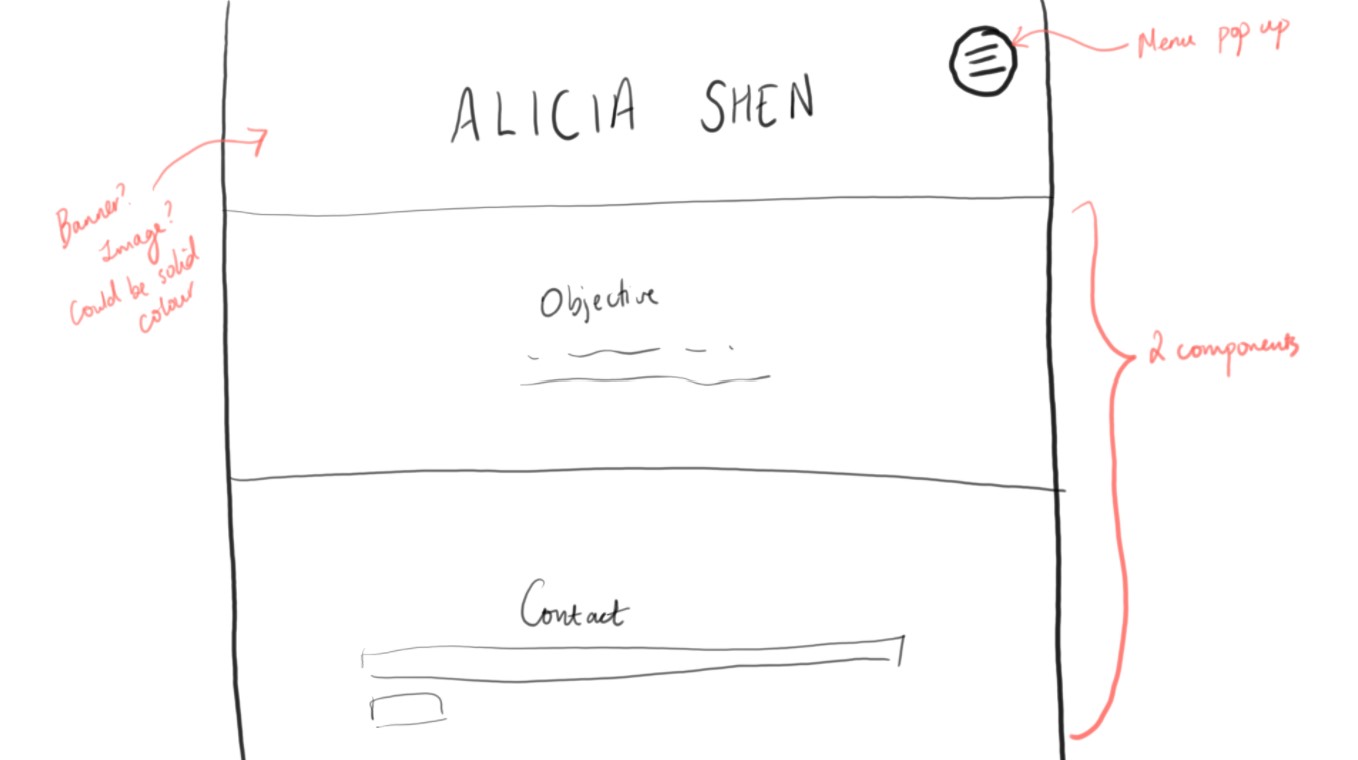 Menu pop up
ALICIA SHEN
Banner?
Image?
Could be solid
colour
Objective
2 components
Contact